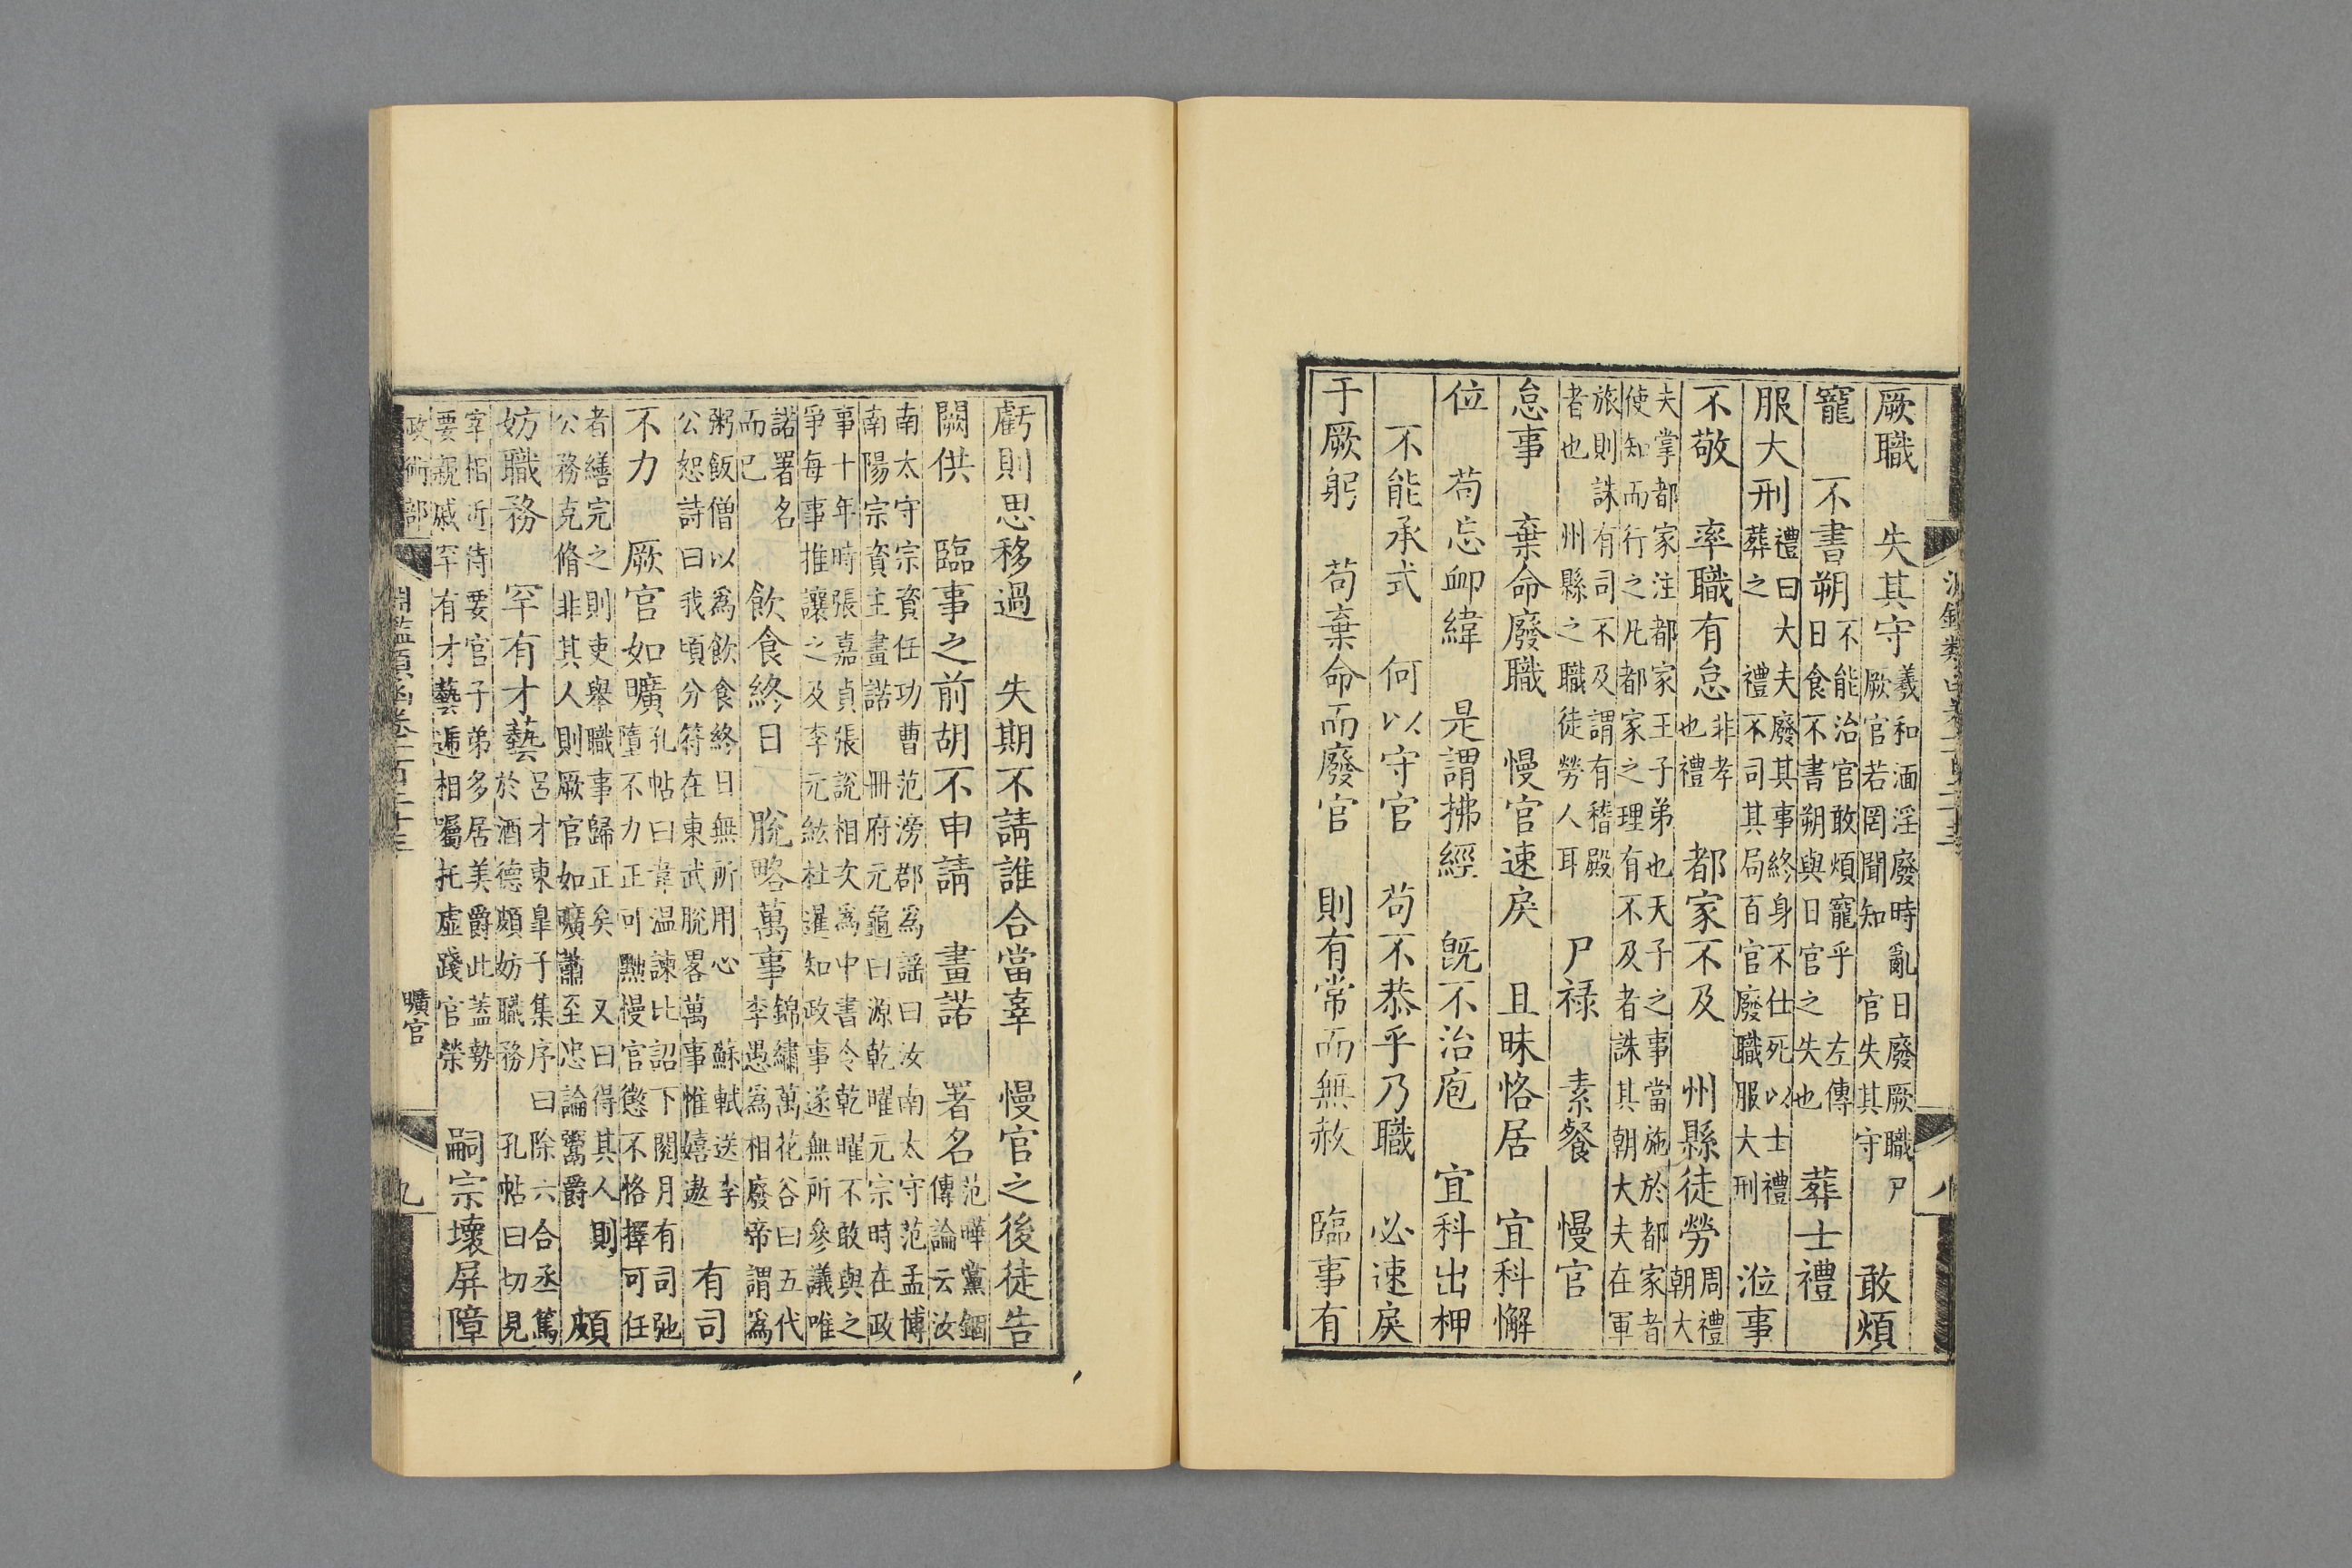 厥職　失其守羲和湎淫廢時亂日廢厥職尸厥官若罔聞知　官失其守　敢煩
寵　不書朔不能治官敢煩寵乎　左傳日食不書朔與日官之失也　葬士禮
服大刑禮曰大夫廢其事終身不仕死以士禮葬之　禮不司其局百官廢職服大刑　涖事
不敬　率職有怠非孝也禮　都家不及　州縣徒勞周禮朝大
夫掌都家注都家王子弟也天子之事當施於都家者使知而行之凡都家之理有不及者誅其朝大夫在軍
旅則誅有司不及謂有稽殿者也　州縣之職徒勞人耳　尸禄　素餐　慢官
怠事　棄命廢職　慢官速戾　且昧恪居　宜科懈
位　苟忘䘏緯　是謂拂經　旣不治庖　宜科出柙
不能承式　何以守官　苟不恭乎乃職　必速戾
于厥躬　苟棄命而廢官　則有常而無赦　臨事有
虧則思移過　失期不請誰合當辜　慢官之後徒告
闕供　臨事之前胡不申請　畫諾　署名范曄黨錮傳論云汝
南太守宗資任功曹范滂郡爲謡曰汝南太守范孟博南陽宗資主畫諾　冊府元龜曰源乾曜元宗時在政
事十年時張嘉貞張說相次爲中書令乾曜不敢與之爭每事推讓之及李元紘杜暹知政事遂無所參議唯
諾署名而已　飲食終日　脫略萬事錦繡萬花谷曰五代李愚爲相廢帝謂爲
粥飯僧以爲飲食終日無所用心　蘇軾送李公恕詩曰我頃分符在東武脫畧萬事惟嬉遨　有司
不力　厥官如曠孔帖曰韋温諫比詔下閱月有司弛墮不力正可黜慢官懲不恪擇可任
者繕完之則吏舉職事歸正矣　又曰得其人則公務克脩非其人則厥官如曠蕭至忠論鬻爵　頗
妨職務　罕有才藝呂才東皐子集序曰除六合丞篤於酒德頗妨職務　孔帖曰切見
宰棺近侍要官子弟多居美爵此蓋勢要親戚罕有才藝遞相囑托虛踐官榮　嗣宗壞屏障
政術部　淵鑑類函卷一百二十三　曠官　九